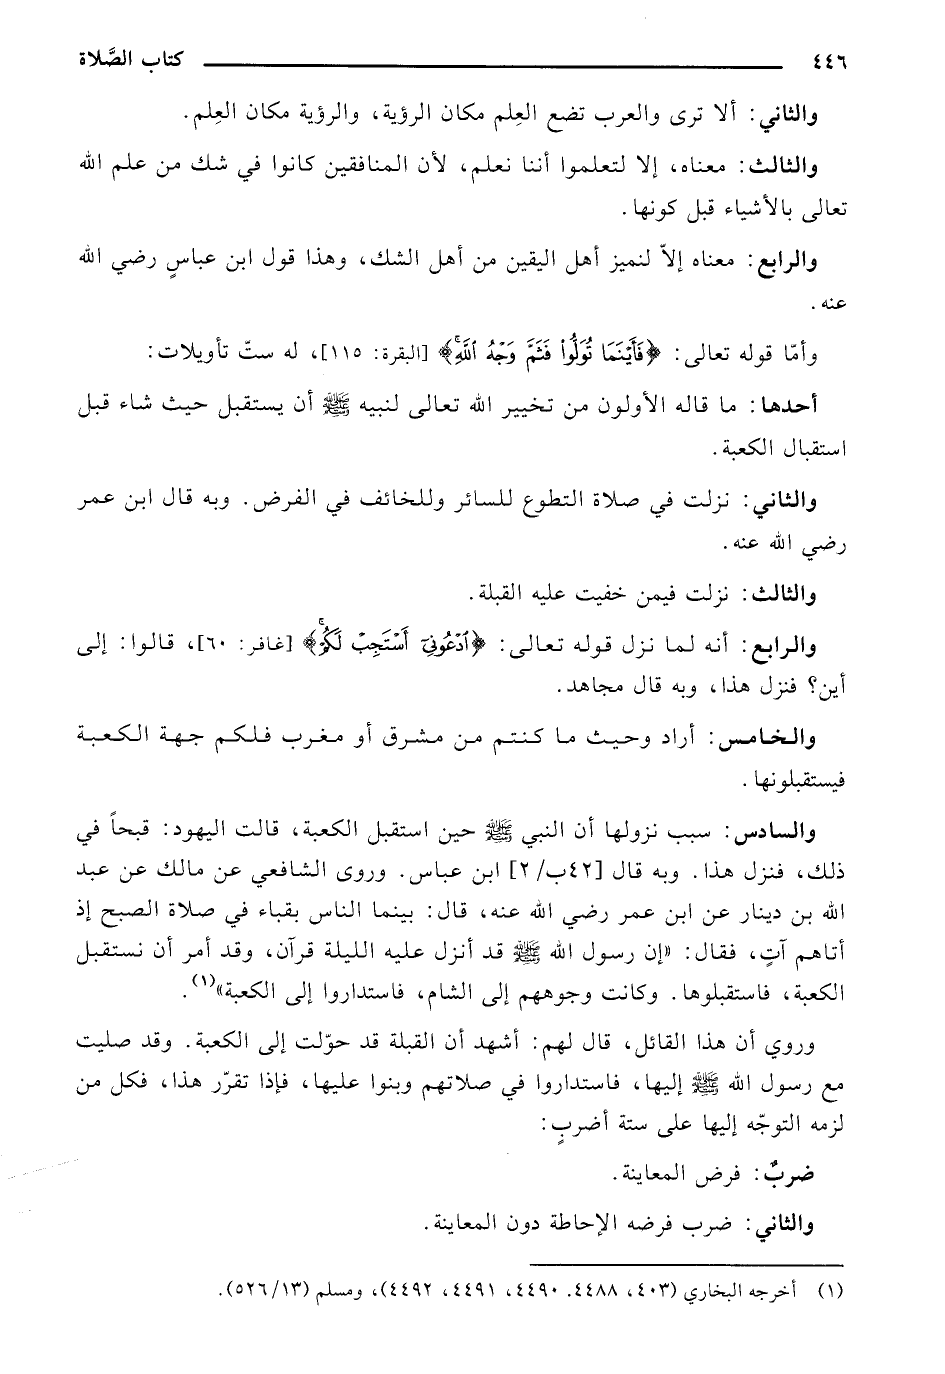 ٤٤٦ كتاب الصَّلاة
والثاني: ألا ترى والعرب تضع العِلم مكان الرؤية، والرؤية مكان العِلم.
والثالث: معناه، إلا لتعلموا أننا نعلم، لأن المنافقين كانوا في شك من علم الله
تعالى بالأشياء قبل كونها.
والرابع: معناه إلاّ لنميز أهل اليقين من أهل الشك، وهذا قول ابن عباسٍ رضي الله
عنه.
وأمّا قوله تعالى: ﴿فَأَيْنَمَا تُوَلُّوا۟ فَثَمَّ وَجْهُ ٱللَّهِ﴾ [البقرة: ١١٥]، له ستّ تأويلات:
أحدها: ما قاله الأولون من تخيير الله تعالى لنبيه ﷺ أن يستقبل حيث شاء قبل
استقبال الكعبة.
والثاني: نزلت في صلاة التطوع للسائر وللخائف في الفرض. وبه قال ابن عمر
رضي الله عنه.
والثالث: نزلت فيمن خفيت عليه القبلة.
والرابع: أنه لما نزل قوله تعالى: ﴿ٱدْعُونِىٓ أَسْتَجِبْ لَكُمْ﴾ [غافر: ٦٠]، قالوا: إلى
أين؟ فنزل هذا، وبه قال مجاهد.
والخامس: أراد وحيث ما كنتم من مشرق أو مغرب فلكم جهة الكعبة
فيستقبلونها.
والسادس: سبب نزولها أن النبي ﷺ حين استقبل الكعبة، قالت اليهود: قبحاً في
ذلك، فنزل هذا. وبه قال [٤٢ب/ ٢] ابن عباس. وروى الشافعي عن مالك عن عبد
الله بن دينار عن ابن عمر رضي الله عنه، قال: بينما الناس بقباء في صلاة الصبح إذ
أتاهم آتٍ، فقال: «إن رسول الله ﷺ قد أنزل عليه الليلة قرآن، وقد أمر أن نستقبل
الكعبة، فاستقبلوها. وكانت وجوههم إلى الشام، فاستداروا إلى الكعبة»(١).
وروي أن هذا القائل، قال لهم: أشهد أن القبلة قد حوّلت إلى الكعبة. وقد صليت
مع رسول الله ﷺ إليها، فاستداروا في صلاتهم وبنوا عليها، فإذا تقرّر هذا، فكل من
لزمه التوجّه إليها على ستة أضربٍ:
ضربٌ: فرض المعاينة.
والثاني: ضرب فرضه الإحاطة دون المعاينة.
(١) أخرجه البخاري (٤٠٣، ٤٤٨٨. ٤٤٩٠، ٤٤٩١، ٤٤٩٢)، ومسلم (٥٢٦/١٣).